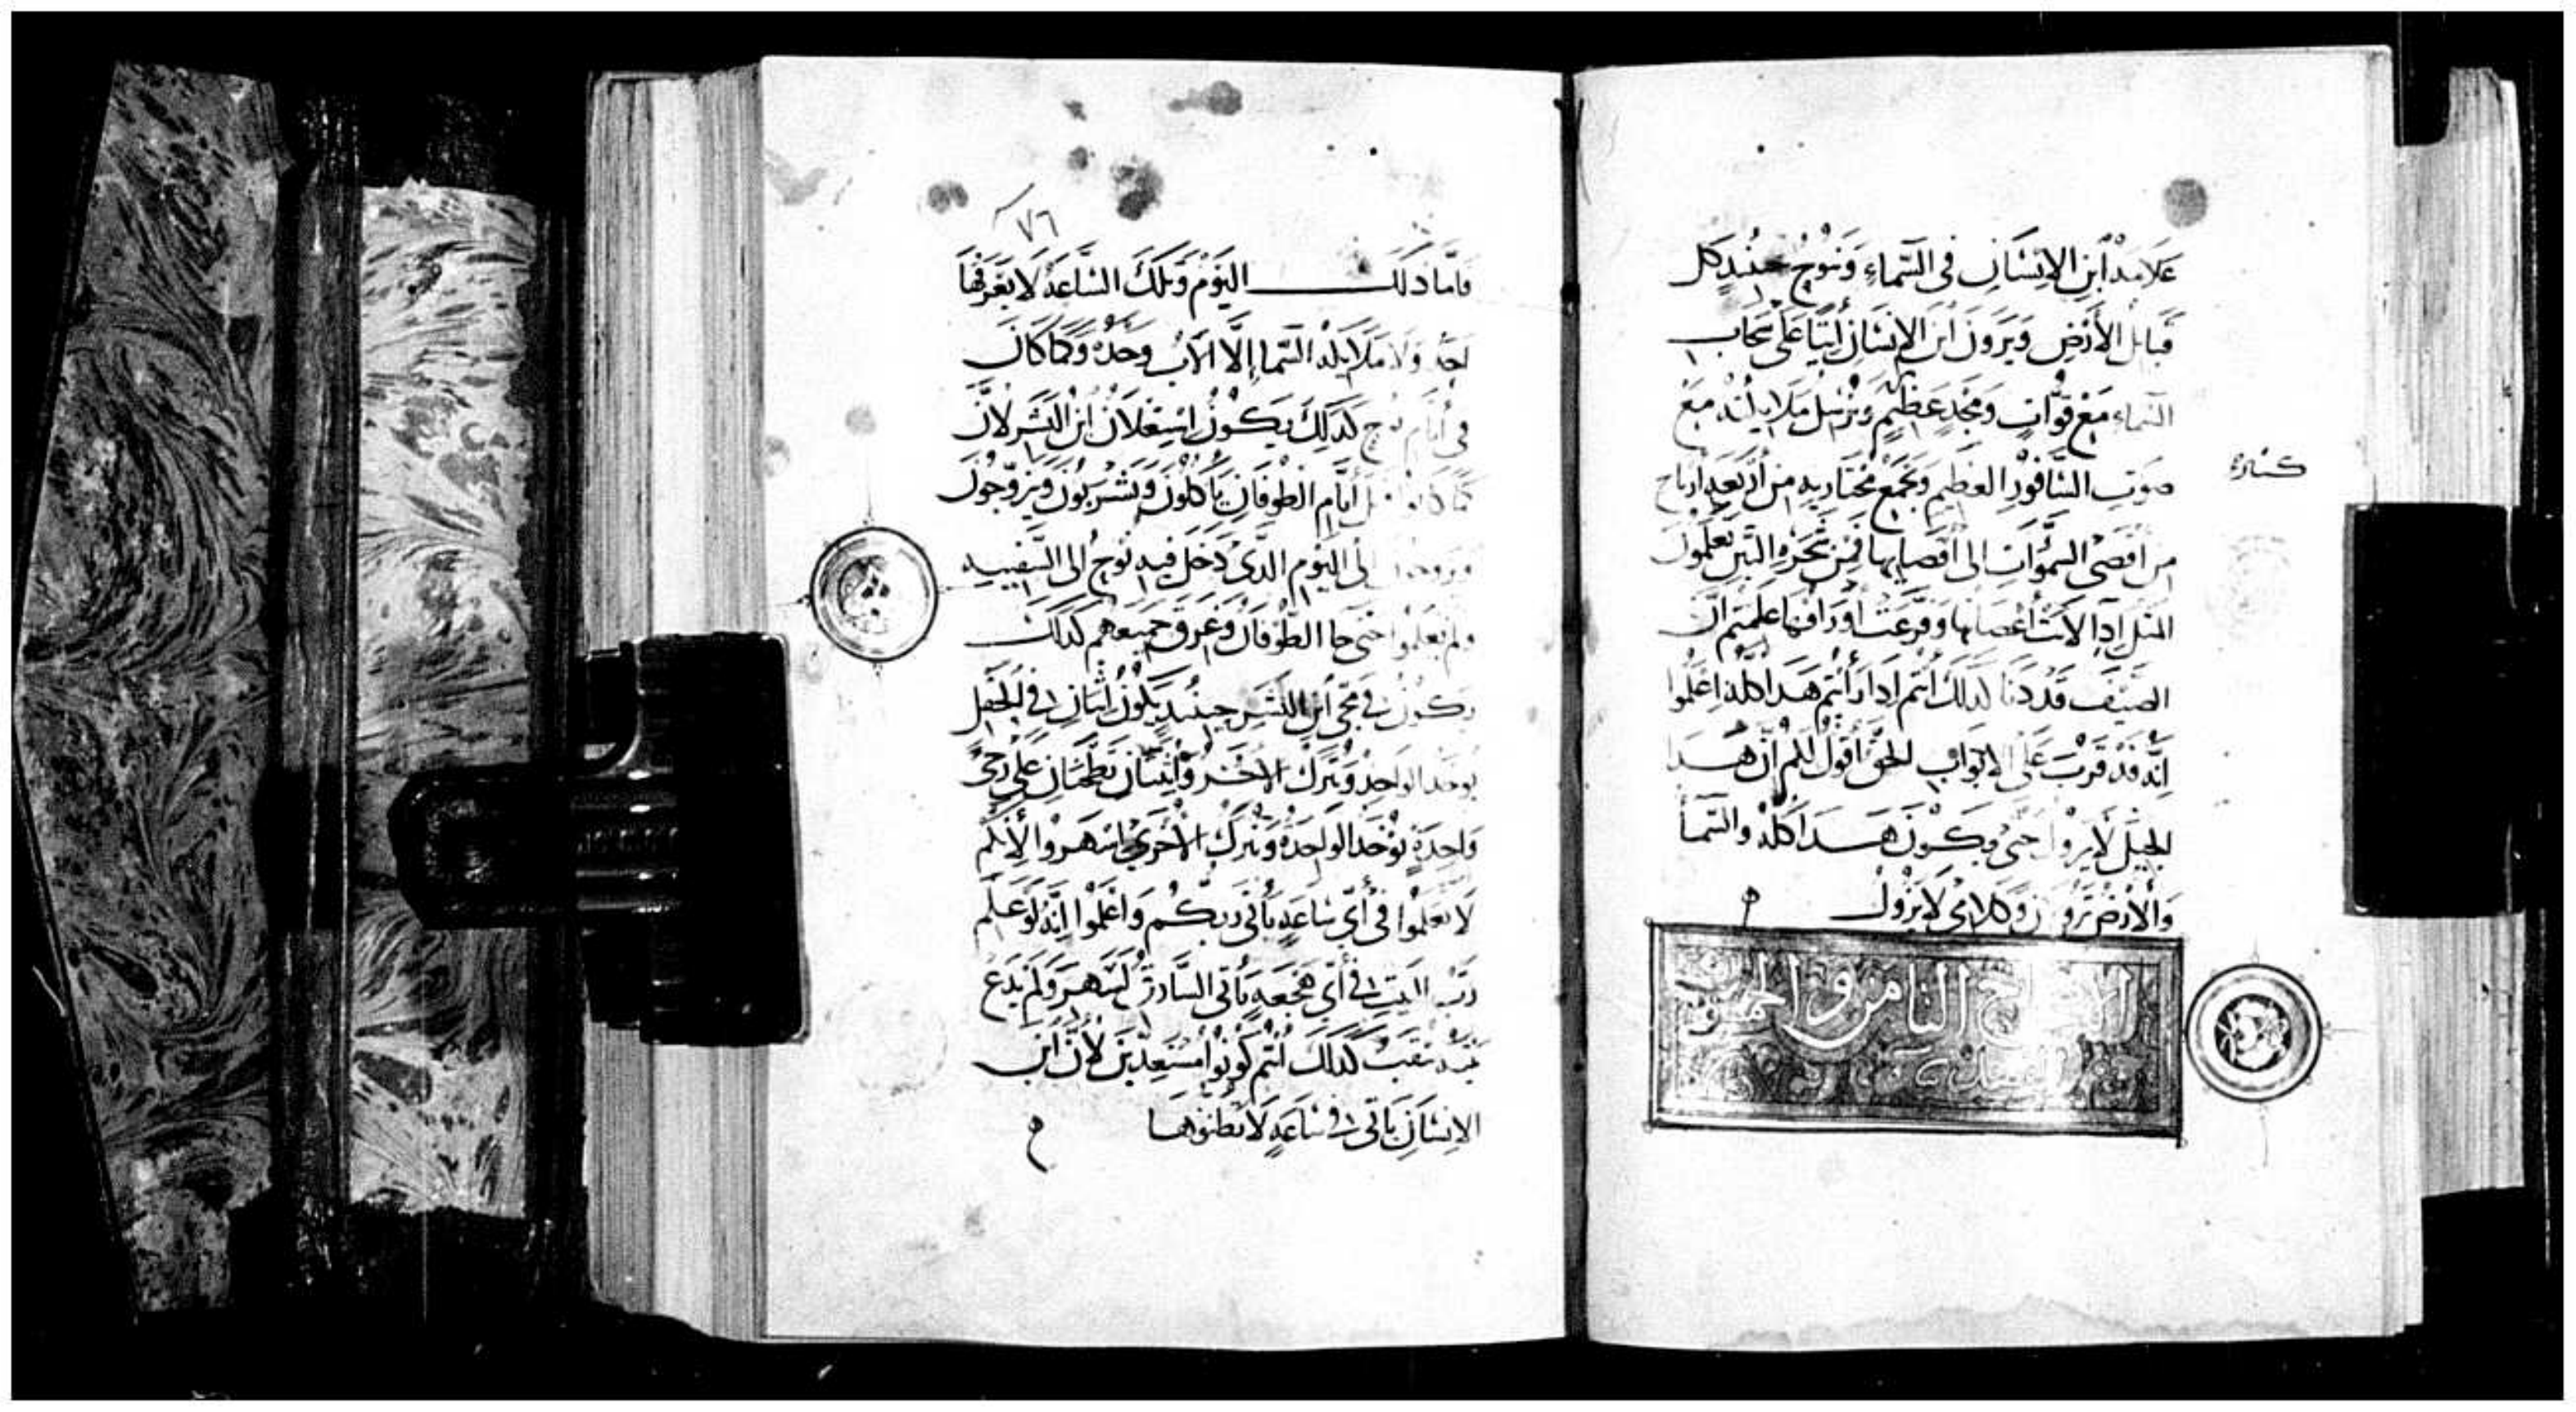 علامة ابن الانسان في السماء وتنوح حينئذ كل
قبائل الأرض ويرون ابن الانسان آتيا على سحاب
السماء مع قوات ومجد عظيم ويرسل ملايكته مع
صوت السافور العظيم وتجمع مختاريه من أربعة ارياح
من اقصى السموات الى اقصايها فمن شجرة التين تعلمون
المثل ادا لانت أغصانها وفرعت أوراقها علمتم ان
الصيف قد دنا كدلك انتم ادا رأيتم هدا كله اعلموا
انه قد قربت على الابواب الحق أقول لكم ان هدا
الجيل لا يزول حتى يكون هدا كله والسما
والارض تزولان وكلامي لا يزول
الاصحاح الثامن والخمسون
فاما دلك اليوم وتلك الساعة لا يعرفها
احد ولا ملايكة السما إلا الآب وحده وكما كان
في أيام نوح كدلك يكون استعلان ابن البشر لان
كما كانوا قبل أيام الطوفان يأكلون ويشربون ويتزوجون
ويزوجون الى اليوم الدى دخل فيه نوح الى السفينه
ولم يعلموا حتى جا الطوفان وغرق جميعهم كدلك
يكون في مجى ابن البشر حينئد يكون اثنان في الحقل
يوخد الواحد ويترك الاخر واثنتان تطحنان على رحى
واحدة توخد الواحدة وتترك الأخرى اسهروا لأنكم
لا تعلموا في أي ساعة يأتى ربكم واعلموا انه لو علم
رب البيت في أي هجعة يأتى السارق لسهر ولم يدع
بيته ينقب كدلك انتم كونوا مستعدين لأن ابن
الانسان ياتى في ساعة لا تظنوها
٧٦